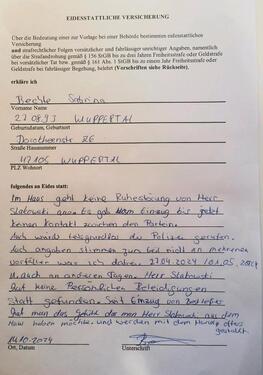 EIDESSTATTLICHE VERSICHERUNG
Über die Bedeutung einer zur Vorlage bei einer Behörde bestimmten eidesstattlichen
Versicherung
und strafrechtlicher Folgen vorsätzlicher und fahrlässiger unrichtiger Angaben, namentlich
über die Strafandrohung gemäß § 156 StGB bis zu drei Jahren Freiheitsstrafe oder Geldstrafe
bei vorsätzlicher Tat bzw. gemäß § 161 Abs. 1 StGB bis zu einem Jahr Freiheitsstrafe oder
Geldstrafe bei fahrlässiger Begehung, belehrt (Vorschriften siehe Rückseite),
erkläre ich
Sabrina
Vorname Name
27.08.93 WUPPERTAL
Geburtsdatum, Geburtsort
Dorotheenstr 26
Straße Hausnummer
42105 WUPPERTAL
PLZ Wohnort
folgendes an Eides statt:
Im Haus geht keine Ruhestörung von Herr
Slatowski aus bis jetzt
keinen Kontakt zwischen den Partein.
Auch wird die Polizei gerufen.
Auch angaben stimmen zum teil nicht an mehreren
vorfälle war ich dabei. 27.04.2024 /01.05.2024
U. auch an anderen Tagen. Herr Slatowski
hat keine Persönlichen Beleidigungen
statt gefunden. Seit Einzug von
hat man das Gefühl das man Herr Slatowski aus dem
Haus haben möchte und werden mit dem Handy öfters
gestalkt.
14.10.2024
Ort, Datum Unterschrift